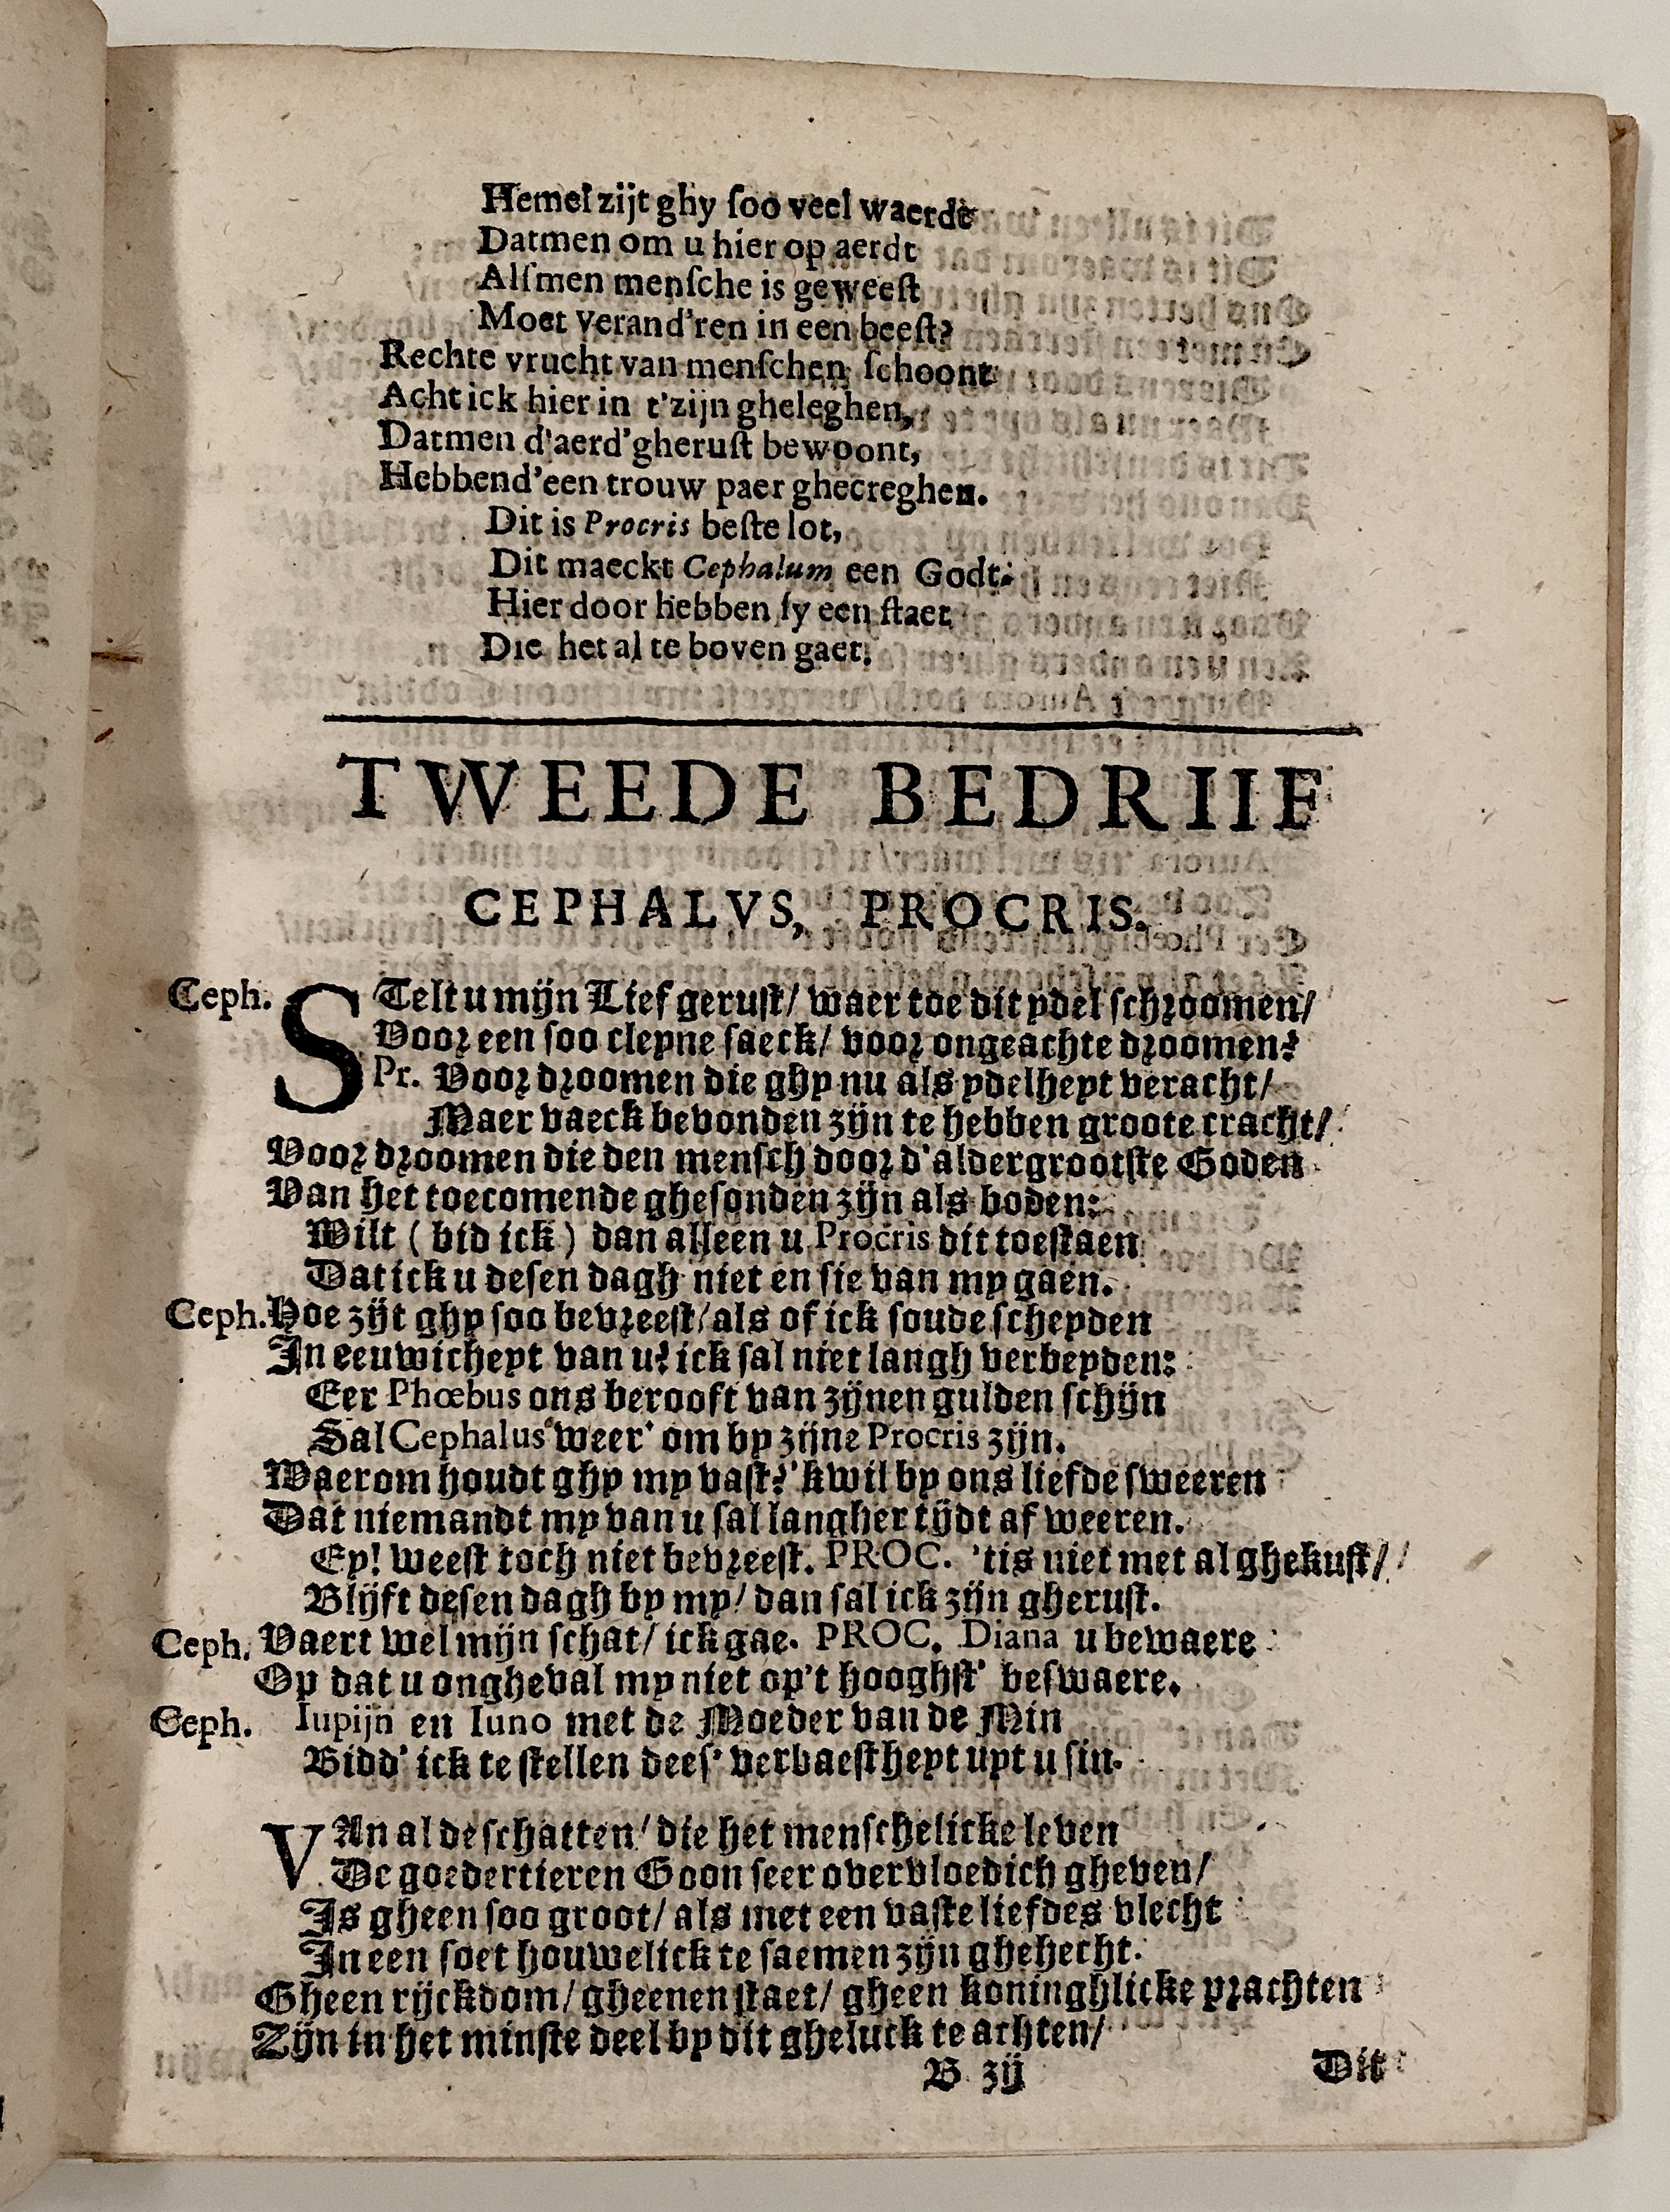 Hemel zijt ghy ſoo veel waerde
Datmen om u hier op aerdt
Alſmen menſche is geweeſt
Moet verand'ren in een beeſt?
Rechte vrucht van menſchen ſchoont
Acht ick hier in t'zijn gheleghen,
Datmen d'aerd'gheruſt bewoont,
Hebbend'een trouw paer ghecreghen.
Dit is Procris beſte lot,
Dit maeckt Cephalum een Godt:
Hier door hebben ſy een ſtaet
Die het al te boven gaet.
TWEEDE BEDRIIF
CEPHALVS, PROCRIS.
Ceph. STelt u mijn Lief geruſt/ waer toe dit ydel ſchroomen/
Voor een ſoo cleyne ſaeck/ voor ongeachte droomen?
Pr. Voor droomen die ghy nu als ydelheyt veracht/
Maer vaeck bevonden zijn te hebben groote cracht/
Voor droomen die den menſch door d'aldergrootſte Goden
Van het toecomende gheſonden zijn als boden:
Wilt (bid ick) dan alleen u Procris dit toeſtaen
Dat ick u deſen dagh niet en ſie van my gaen.
Ceph. Hoe zijt ghy ſoo bevreeſt/ als of ick ſoude ſcheyden
In eeuwicheyt van u? ick ſal niet langh verbeyden:
Eer Phœbus ons berooft van zijnen gulden ſchijn
Sal Cephalus weer' om by zijne Procris zijn.
Waerom houdt ghy my vaſt? 'k wil by ons liefde ſweeren
Dat niemandt my van u ſal langher tijdt af weeren.
Ey! weeſt toch niet bevreeſt. PROC. 'tis niet met al ghekuſt/
Blijft deſen dagh by my/ dan ſal ick zijn gheruſt.
Ceph. Vaert wel mijn ſchat/ ick gae. PROC. Diana u bewaere
Op dat u ongheval my niet op't hooghſt' beſwaere.
Ceph. Iupijn en Iuno met de Moeder van de Min
Bidd' ick te ſtellen deeſ' verbaeſtheyt uyt u ſin.
VAn al de ſchatten/ die het menſchelicke leven
De goedertieren Goon ſeer overvloedich gheven/
Is gheen ſoo groot/ als met een vaſte liefdes vlecht
In een ſoet houwelick te ſaemen zijn ghehecht.
Gheen rijckdom/ gheenen ſtaet/ gheen koninghlicke prachten
Zijn in het minſte deel by dit gheluck te achten/
B zij Dit